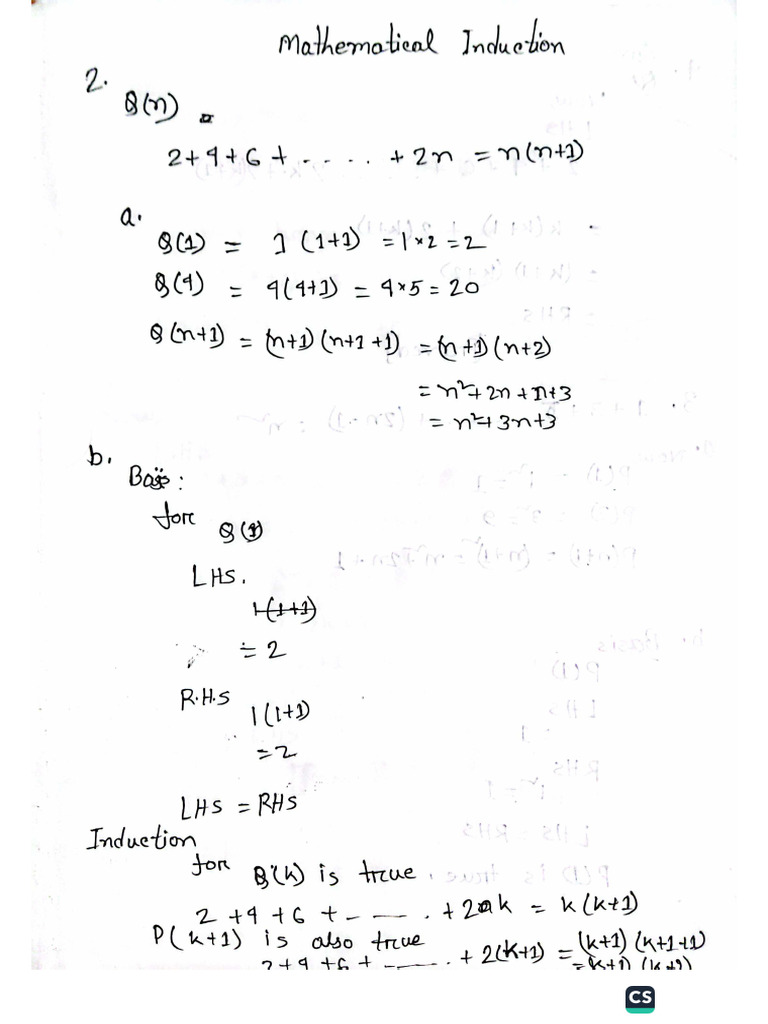 Mathematical Induction
2.
Q(n) =
2+4+6+ ----- + 2n = n(n+1)
a.
Q(1) = 1 (1+1) = 1×2 = 2
Q(4) = 4(4+1) = 4×5 = 20
Q(n+1) = (n+1)(n+1+1) = (n+1)(n+2)
= n²+2n+n+3
= n²+3n+3
b.
Basis:
for Q(1)
LHS.
1(1+1)
= 2
R.H.S
1(1+1)
=2
LHS = RHS
Induction
for Q(k) is true.
2+4+6+ ----- . +2k = k(k+1)
P(k+1) is also true
2+4+6+ ------ . + 2(k+1) = (k+1)(k+1+1)
= (k+1)(k+2)
CS